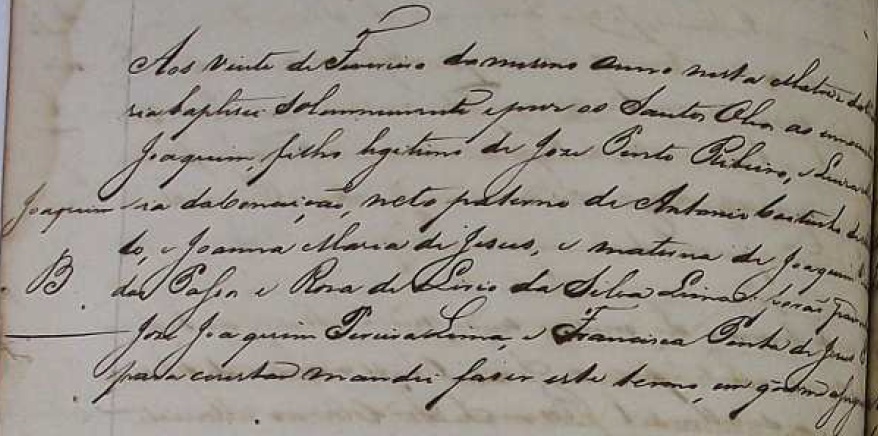 Aos vinte de Fevereiro do mesmo anno nesta Matriz
ria baptisei Solemnemente e puz os Santos Oleos ao innocen
Joaquim, filho legitimo de Joze Pinto Ribeiro, e
Joaquim
ria da Conceição, neto paterno de Antonio
to, e Joanna Maria de Jesus, e materna de Joaquim
B
dos Passos e Rosa de Lirio da Silva Lima: forão
José Joaquim Pereira Lima, e Francisca Pinta de Jesus
para constar mandei faser este termo, em q